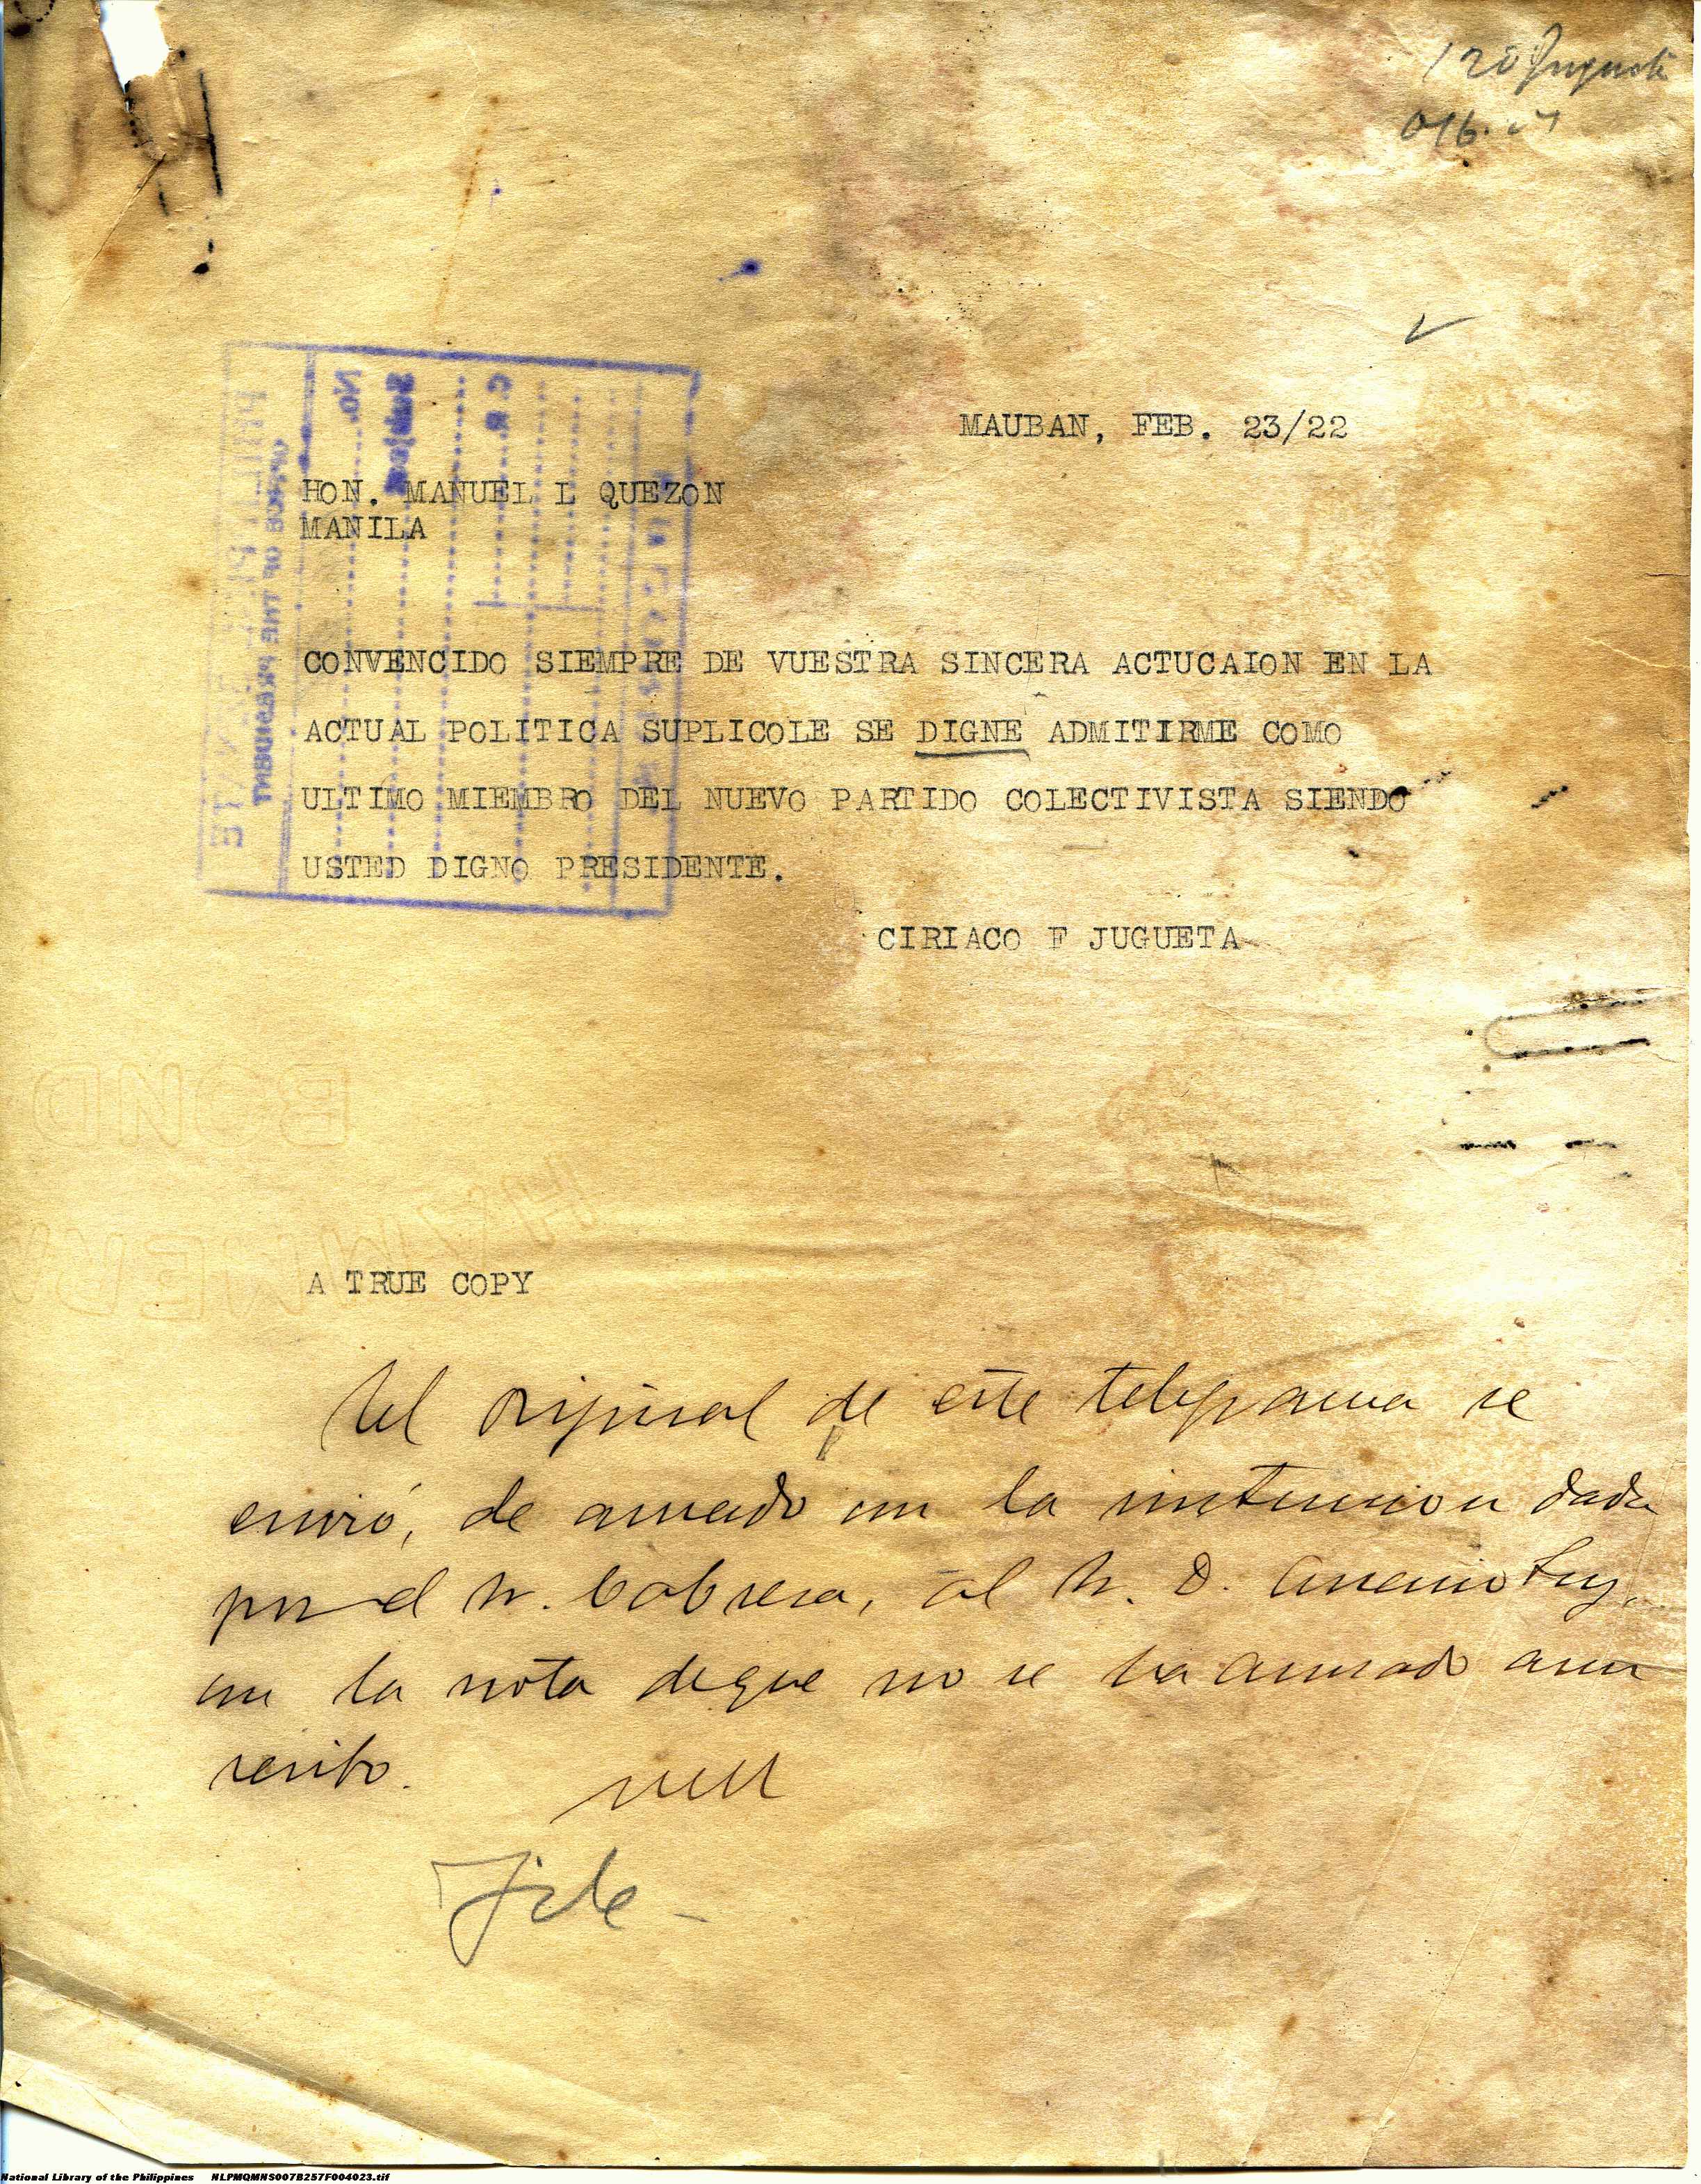 MAUBAN, FEB. 23/22
HON. MANUEL L QUEZON
MANILA
CONVENCIDO SIEMPRE DE VUESTRA SINCERA ACTUCAION EN LA
ACTUAL POLITICA SUPLICOLE SE DIGNE ADMITIRME COMO
ULTIMO MIEMBRO DEL NUEVO PARTIDO COLECTIVISTA SIENDO
USTED DIGNO PRESIDENTE.
CIRIACO F JUGUETA
BOND
HAMMER
A TRUE COPY
El original de este telegrama se
envió, de acuerdo con la instruccion dada
por el Sr. Cabrera, al Sr. D. Asuncio
con la nota de que no se ha acusado aun
recibo.
File -
National Library of the Philippines NLPMQMNS007B257F004023.tif